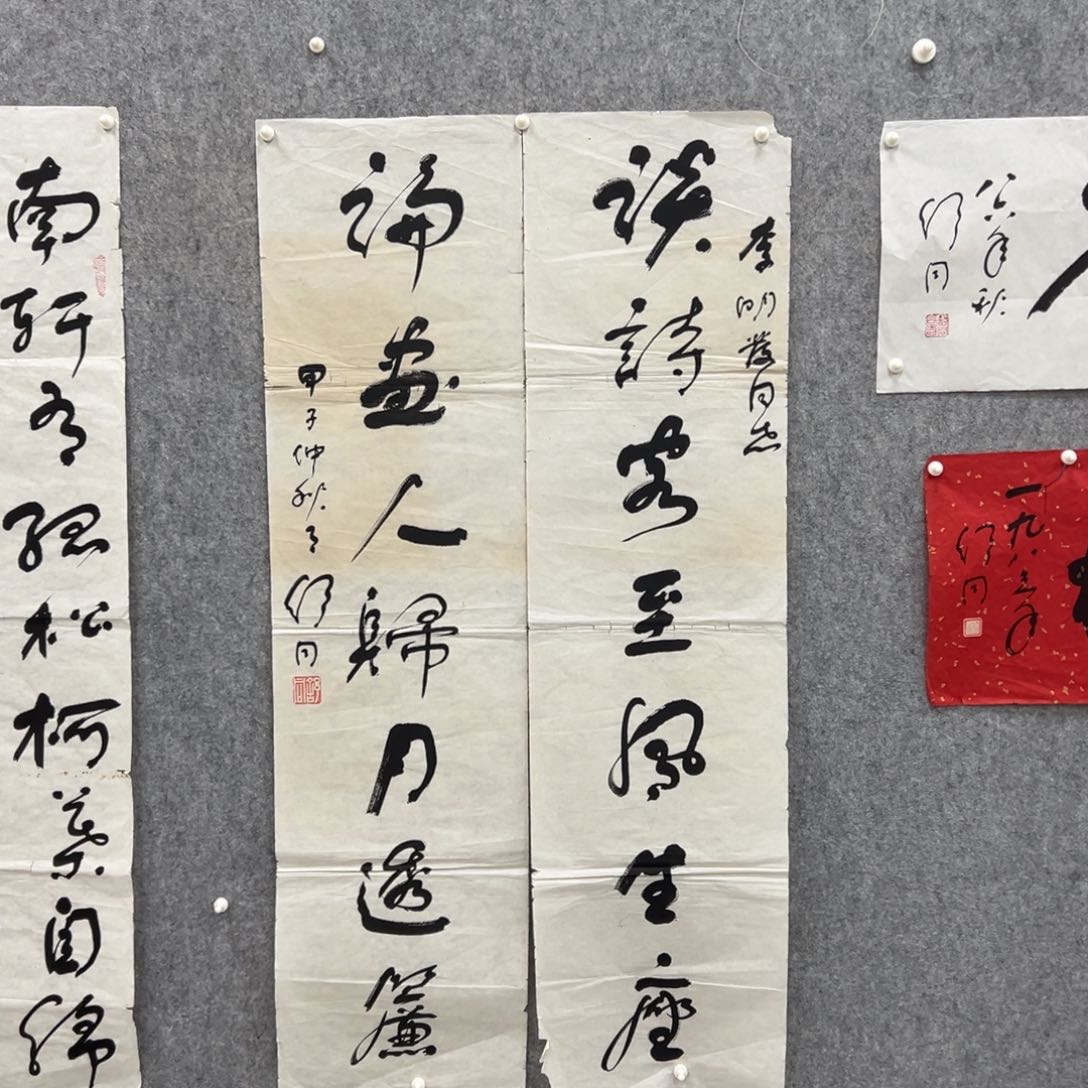 八六年秋
舒同
一九八五年
舒同
李明發同志
談詩客至風生座
論畫人歸月透簾
甲子仲秋月
舒同
舒同
南軒有孤松柯葉自綿